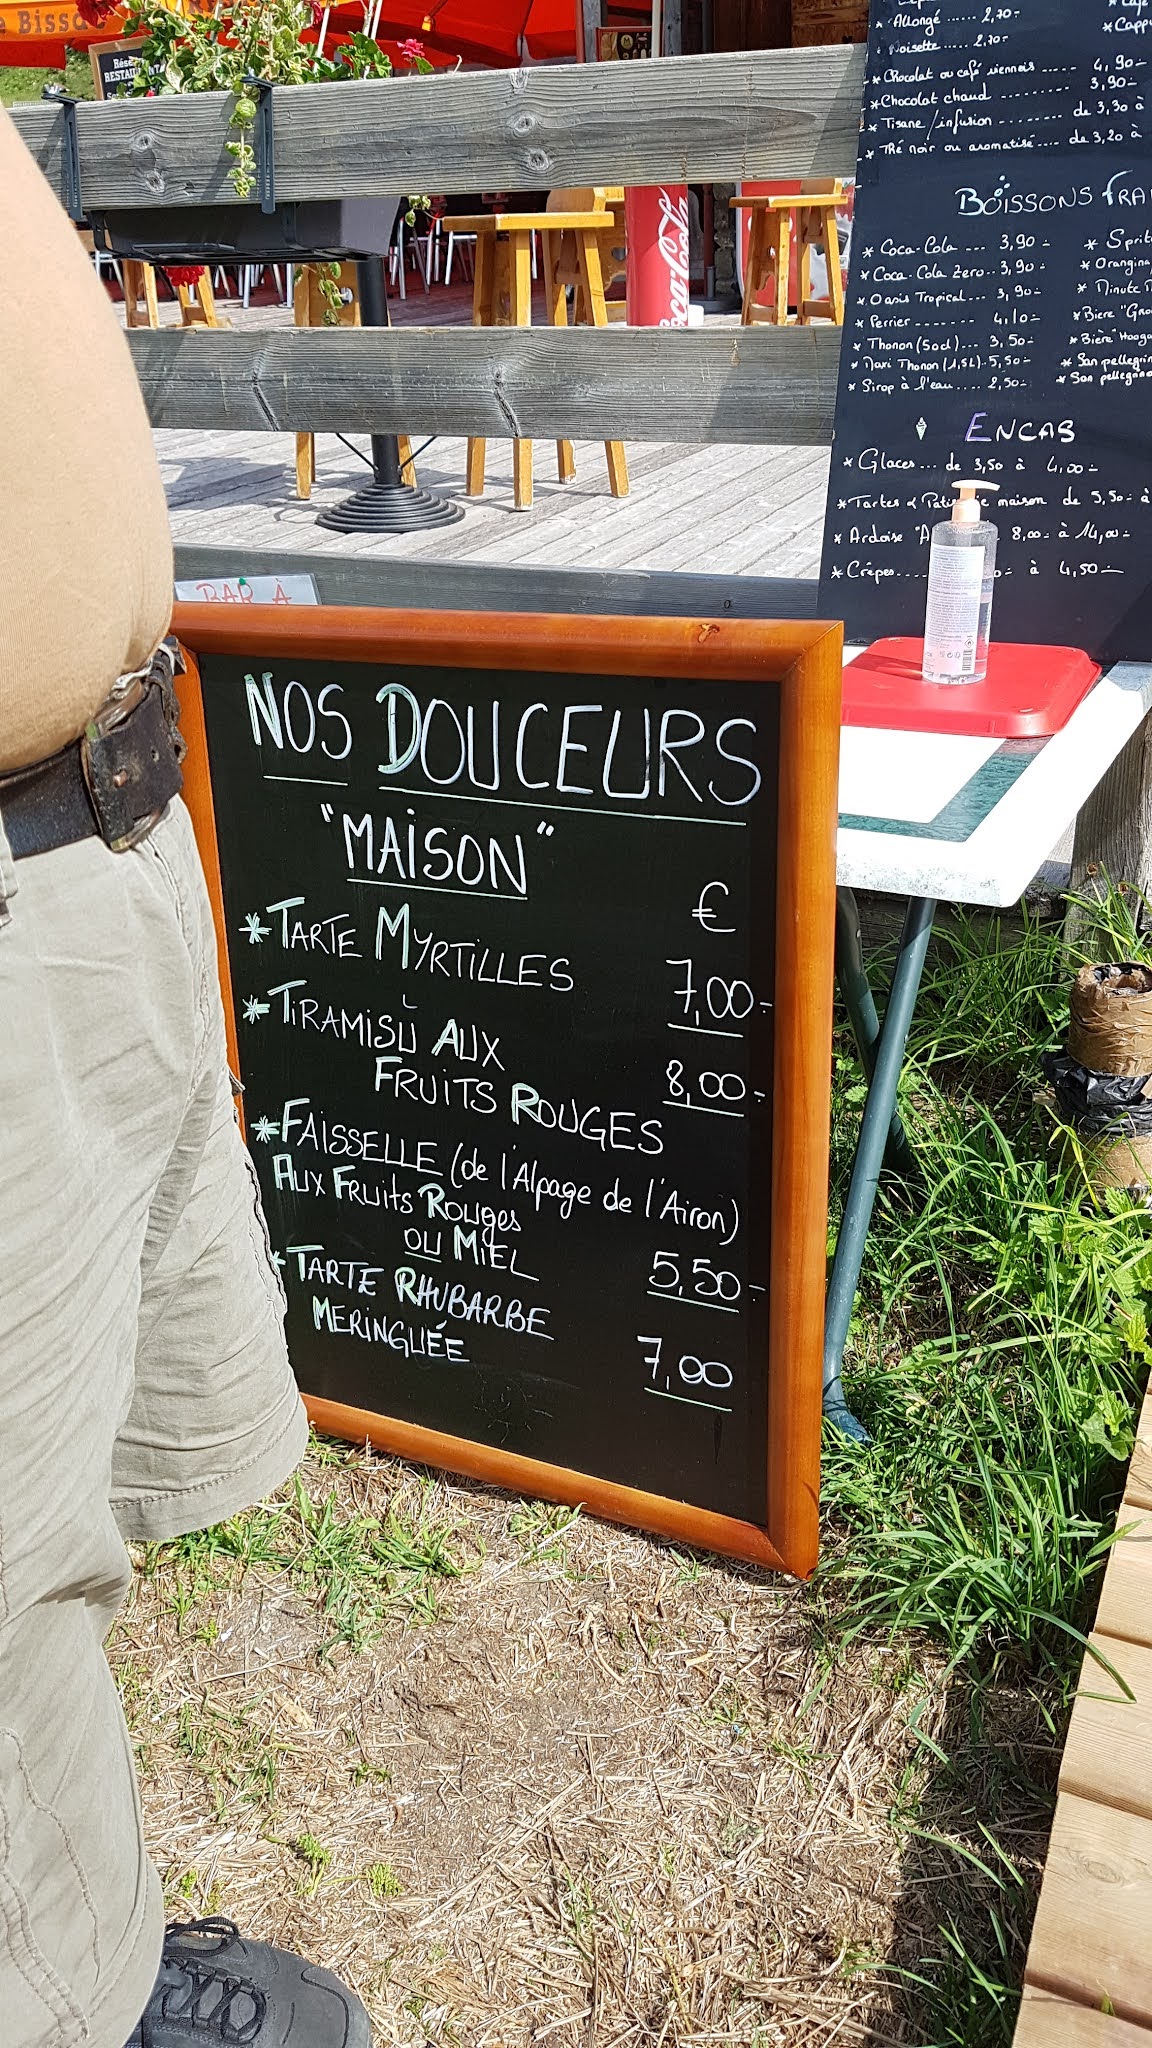 Bissa
RESTAURANT
Allongé ...... 2,70-
Noisette ..... 2,70-
* Chocolat ou café viennois ..... 4,90-
* Chocolat chaud ......... 3,90-
* Tisane/infusion --------- de 3,30 à
* Thé noir ou aromatisé.... de 3,20 à
* Café
* Capp
BOISSONS FRA
* Coca-Cola --- 3,90-
* Coca-Cola Zero.. 3,90-
* Oasis Tropical... 3,90-
* Perrier ------- 4,10-
* Thonon (50cl)... 3,50-
* Maxi Thonon (1,5L). 5,50-
* Sirop à l'eau.... 2,50-
* Sprit
* Orangina
* Minute
* Bière "Gro
* Bière
* San pellegrin
* San pellegrino
ENCAS
* Glaces... de 3,50 à 4,00-
* Tartes & maison de 5,50- à
* Ardoise "A 8,00- à 14,00-
* Crêpes.... à 4,50-
Coca-Cola
BAR À
NOS DOUCEURS
"MAISON"
€
* TARTE MYRTILLES 7,00-
* TIRAMISÙ AUX
FRUITS ROUGES 8,00-
* FAISSELLE (de l'Alpage de l'Airon)
AUX FRUITS ROUGES
OU MIEL 5,50-
* TARTE RHUBARBE
MERINGUÉE 7,00